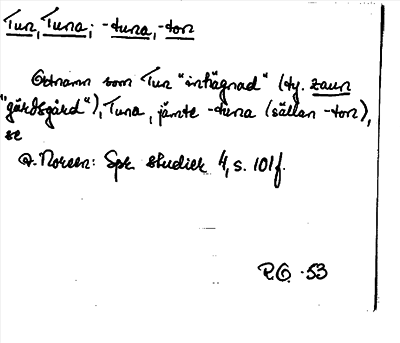 Tun, Tuna; -tuna, -ton
Ortnamn som Tun "inhägnad" (ty. zaun
"gärdsgård"), Tuna, jämte -tuna (sällan -ton),
se
A. Noreen: Spr. studier 4, s. 101f.
R.O. -53